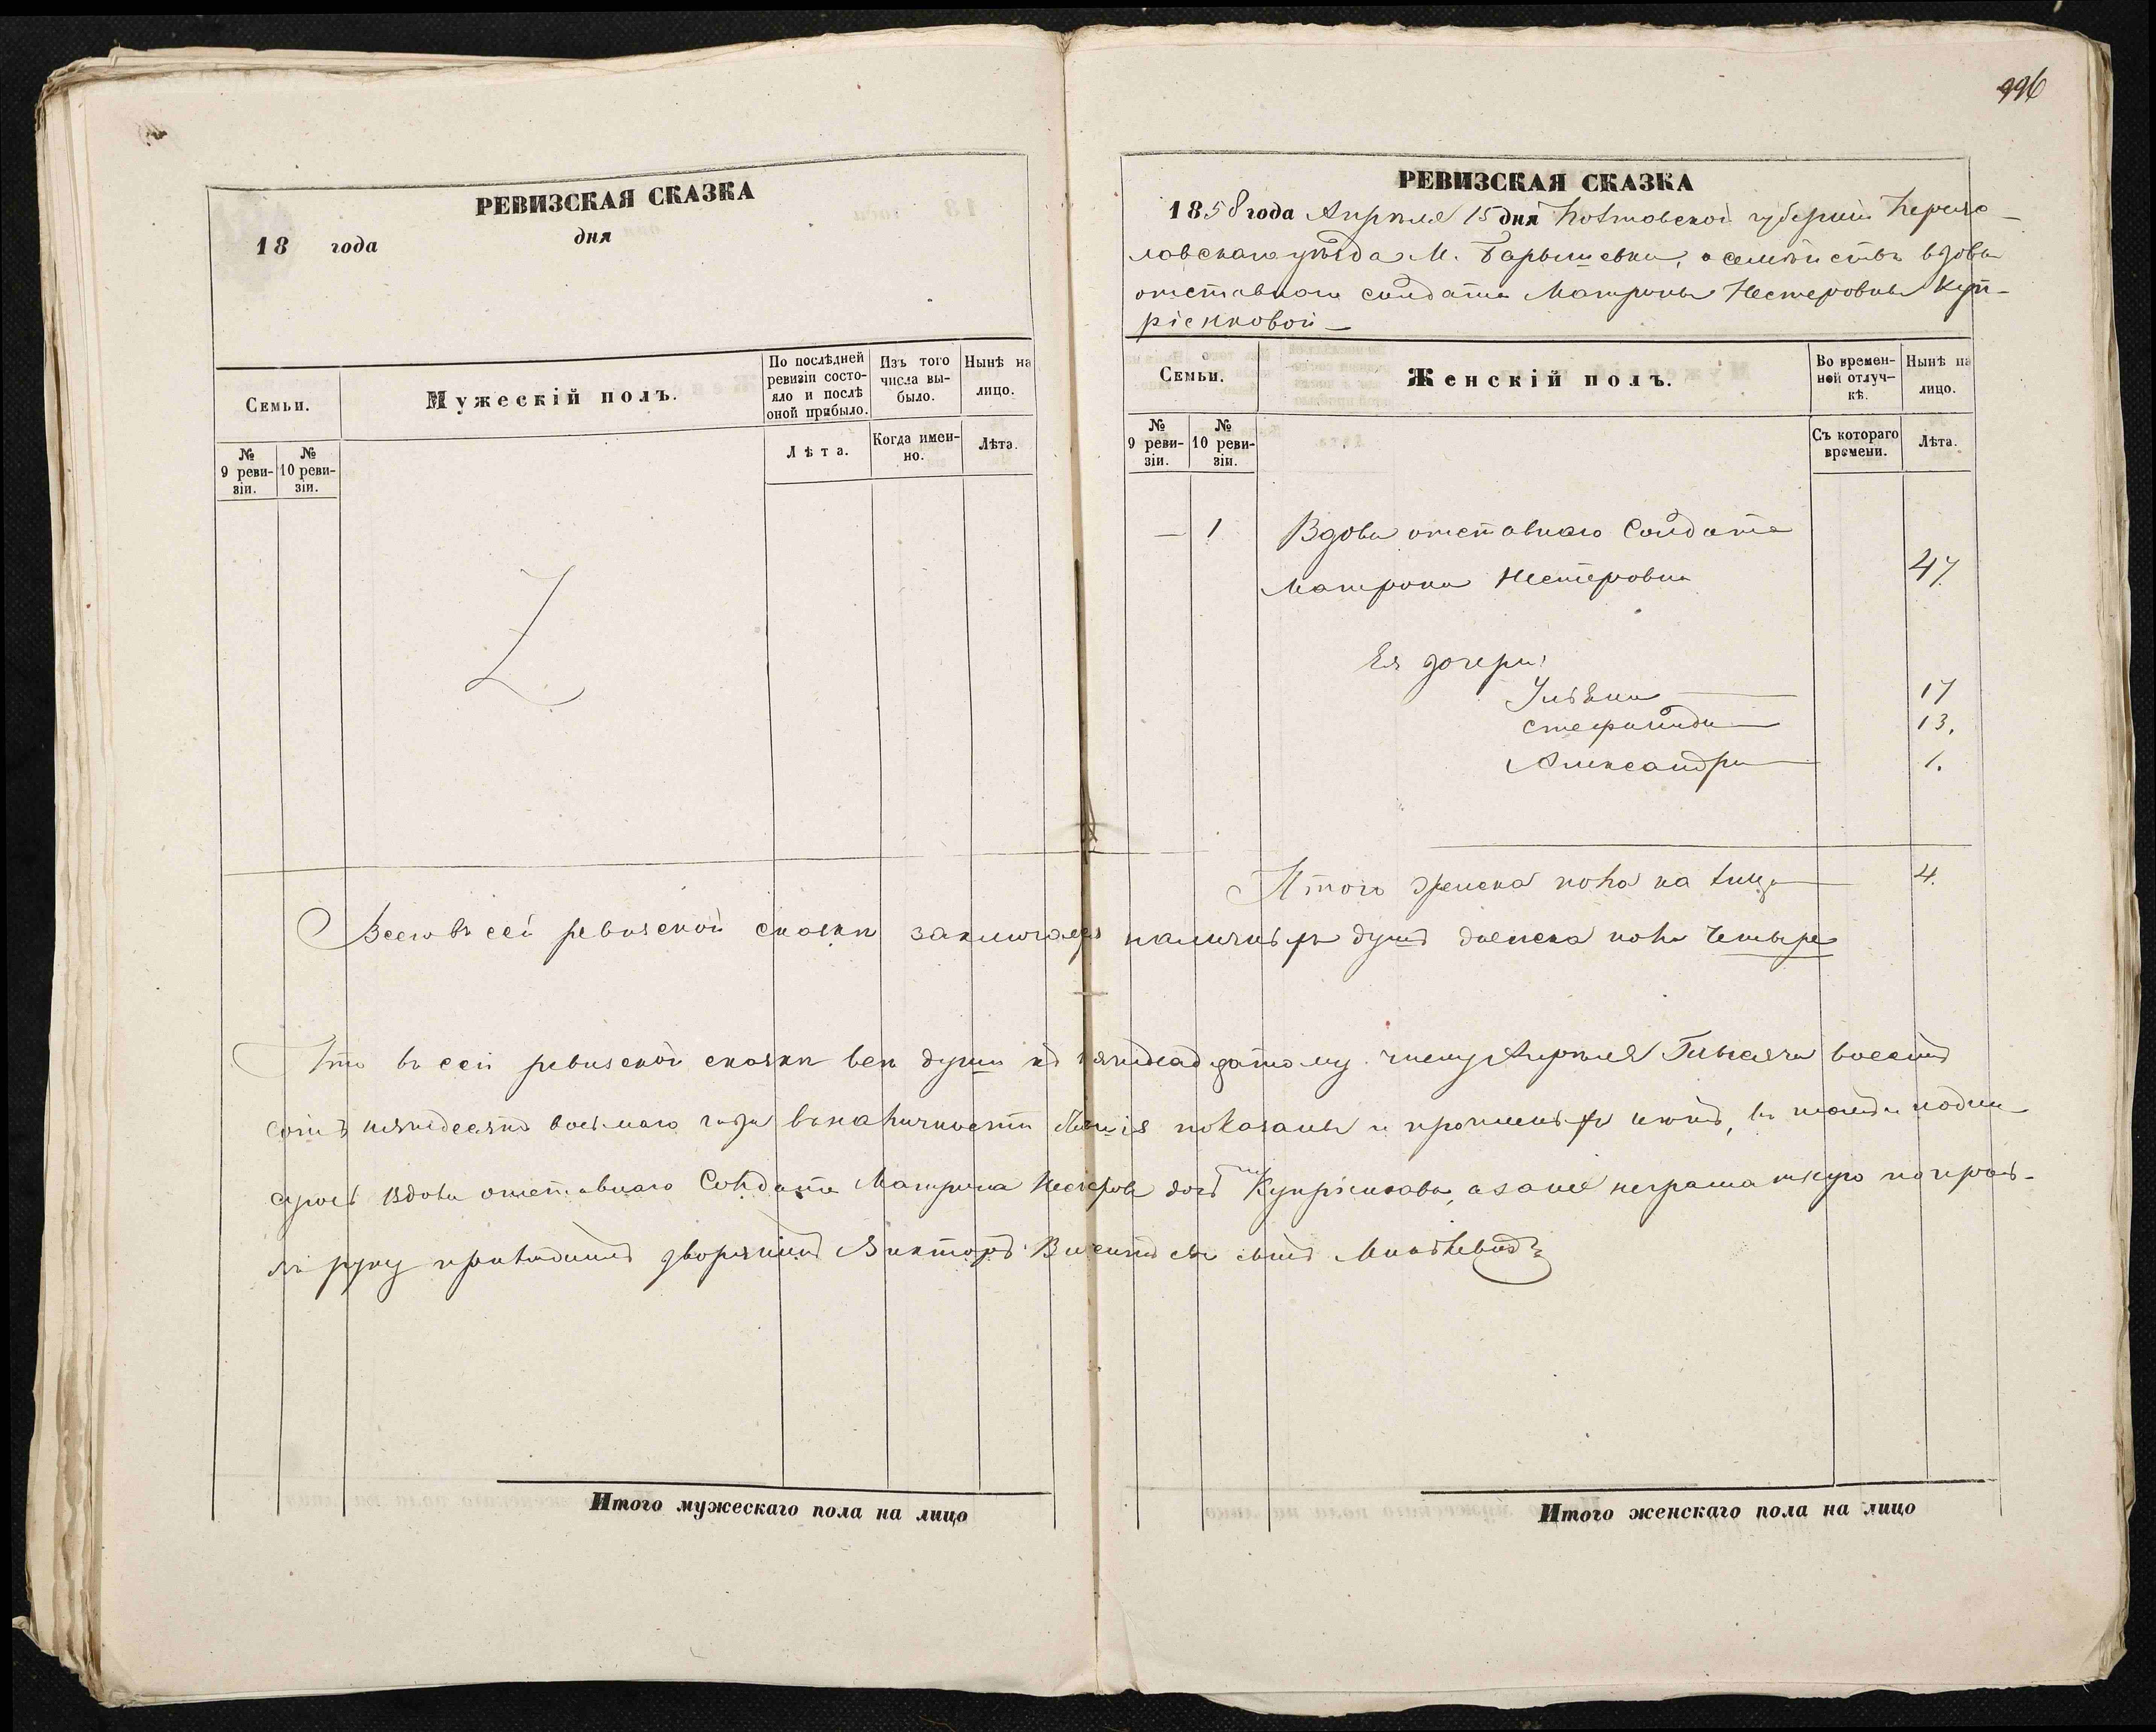 996
РЕВИЗСКАЯ СКАЗКА
18 года дня
Семьи.
Мужескій полъ.
По послѣдней ревизіи состояло и послѣ оной прибыло.
Изъ того числа выбыло.
Нынѣ на лицо.
№ 9 ревизіи.
№ 10 ревизіи.
Лѣта.
Когда именно.
Лѣта.
РЕВИЗСКАЯ СКАЗКА
1858 года Апрѣля 15 дня Полтавской губерніи Переяс-
лавскаго уѣзда М. Барышевки, о семѣйствѣ вдовы
отставнаго солдата Матроны Нестеровны Куп-
ріенковой
Семьи.
Женскій полъ.
Во временной отлучкѣ.
Нынѣ на лицо.
№ 9 ревизіи.
№ 10 ревизіи.
Съ котораго времени.
Лѣта.
— 1 Вдова отставнаго Солдата
Матрона Нестеровна 47
Ея дочери:
Ульяна 17
Степанида 13.
Александра 1.
Итого женска пола на лицо 4.
Всего въ сей ревизской сказкѣ заключается наличныхъ душъ женска пола Четыре
Что въ сей ревизской сказкѣ всѣ души къ пятнадцатому числу Апрѣля Тысяча восемь
сотъ пятьдесятъ восьмаго года въ наличности показаны и прописныхъ нѣтъ, въ томъ и подпи-
суюсь Вдова отставнаго Солдата Матрона Нестерова дочь Купріенкова, а за нее неграматную по прозь-
бѣ руку приложилъ дворянинъ Викторъ сынъ
Итого мужескаго пола на лицо
Итого женскаго пола на лицо